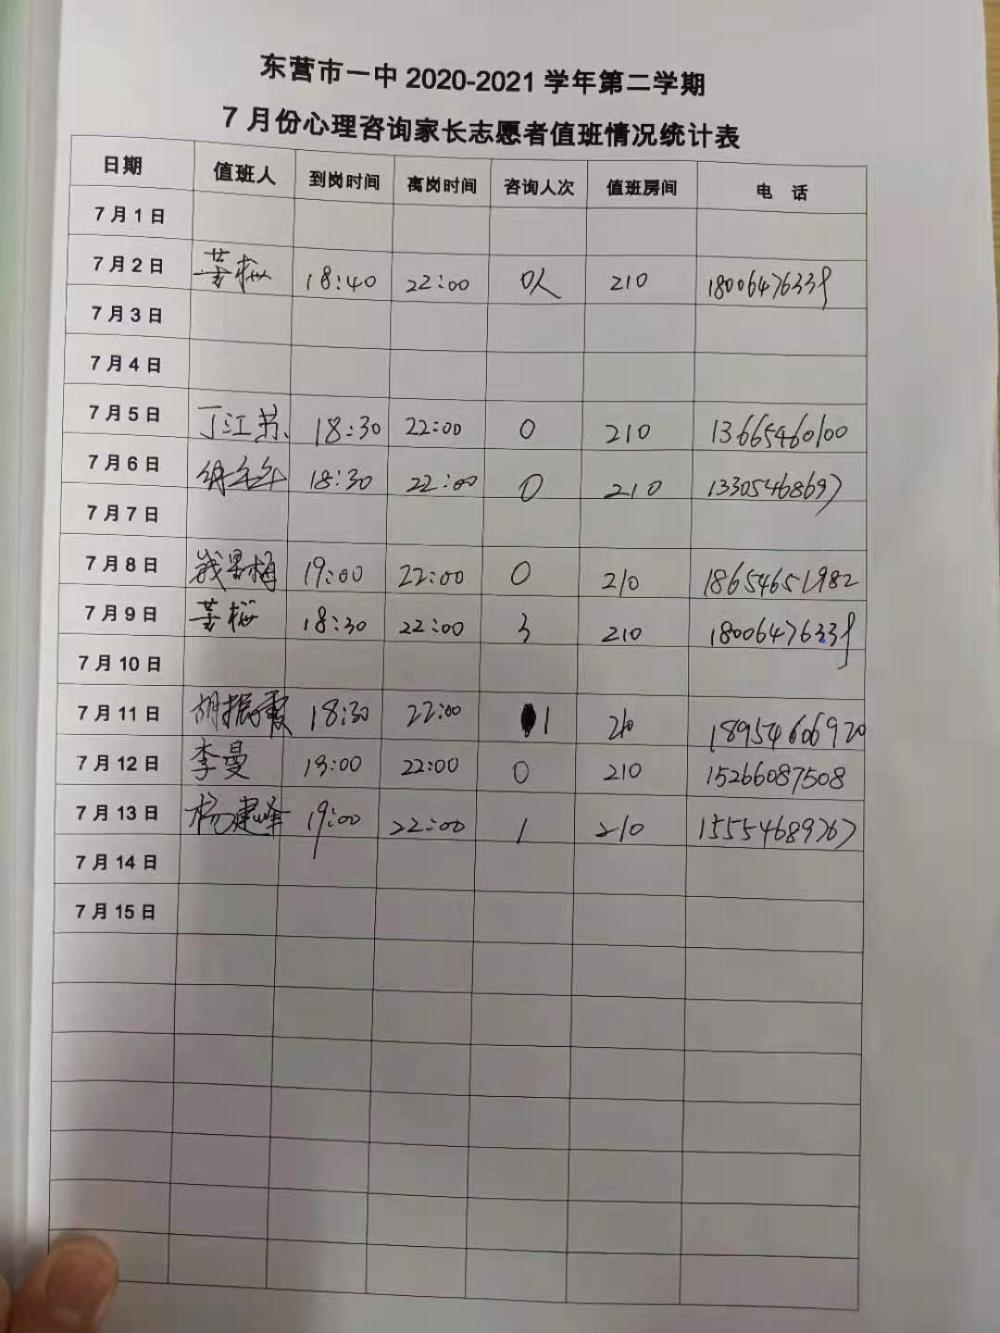 东营市一中2020-2021学年第二学期
7月份心理咨询家长志愿者值班情况统计表
日期 值班人 到岗时间 离岗时间 咨询人次 值班房间 电 话
7月1日
7月2日 18:40 22:00 0人 210 18006476339
7月3日
7月4日
7月5日 丁江苏 18:30 22:00 0 210 13665460100
7月6日 18:30 22:00 0 210 13305468697
7月7日
7月8日 19:00 22:00 0 210 18654651982
7月9日 18:30 22:00 3 210 18006476339
7月10日
7月11日 胡振霞 18:30 22:00 1 210 18954606920
7月12日 李曼 19:00 22:00 0 210 15266087508
7月13日 杨建峰 19:00 22:00 1 210 15554689767
7月14日
7月15日